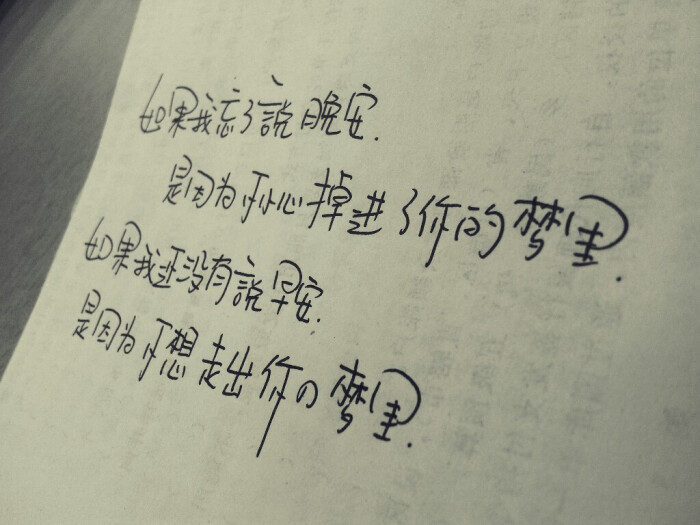 如果我忘了說晚安.
是因为不小心掉进了你的梦里.
如果我还没有說早安.
是因为不想走出你の梦里.